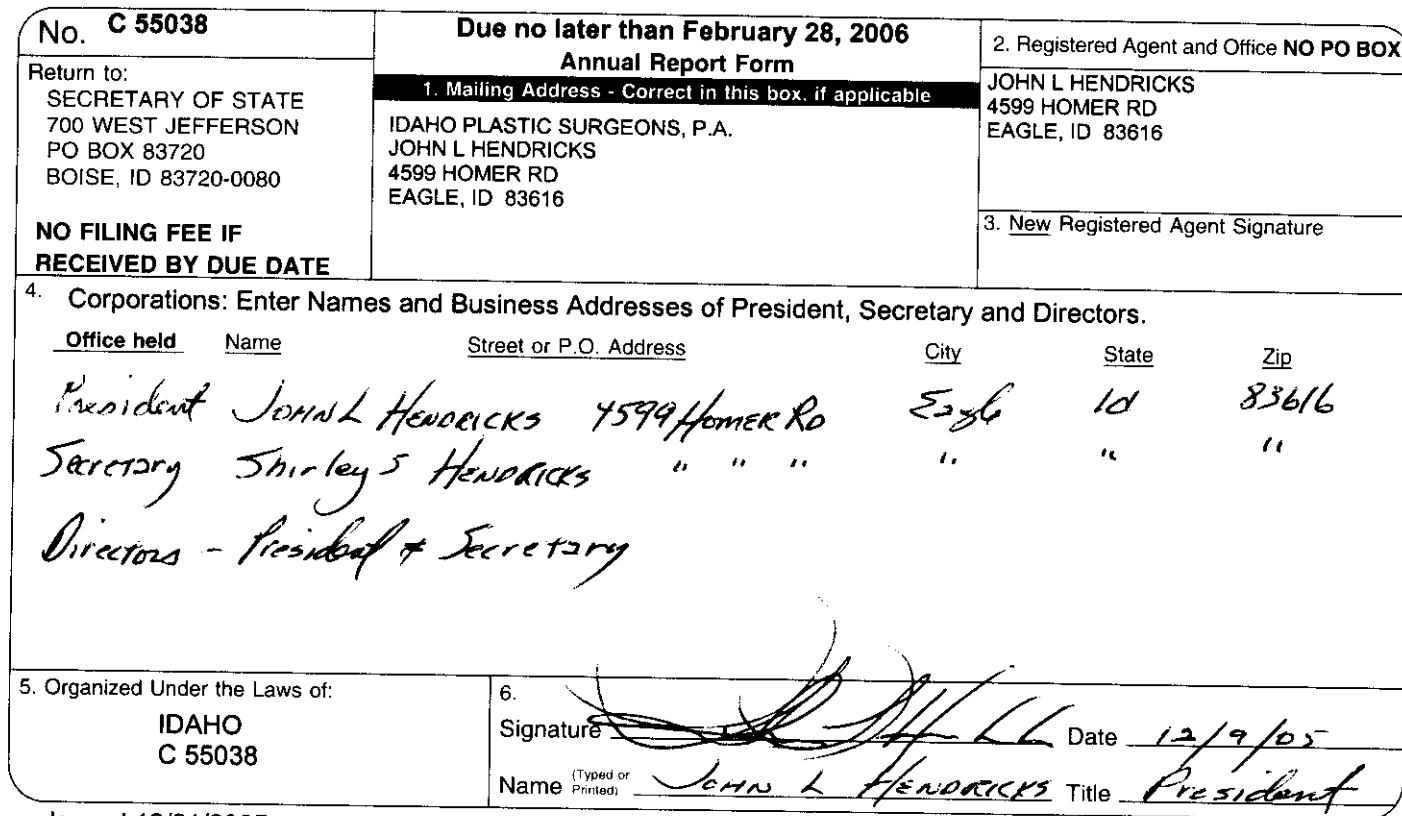 No. C 55038
Return to:
SECRETARY OF STATE
700 WEST JEFFERSON
PO BOX 83720
BOISE, ID 83720-0080
NO FILING FEE IF
RECEIVED BY DUE DATE
Due no later than February 28, 2006
Annual Report Form
1. Mailing Address - Correct in this box, if applicable
IDAHO PLASTIC SURGEONS, P.A.
JOHN L HENDRICKS
4599 HOMER RD
EAGLE, ID 83616
2. Registered Agent and Office NO PO BOX
JOHN L HENDRICKS
4599 HOMER RD
EAGLE, ID 83616
3. New Registered Agent Signature
4. Corporations: Enter Names and Business Addresses of President, Secretary and Directors.
Office held Name Street or P.O. Address City State Zip
President JOHN L HENDRICKS 4599 HOMER RD Eagle Id 83616
Secretary Shirley S HENDRICKS " " " " " "
Directors - President & Secretary
5. Organized Under the Laws of:
IDAHO
C 55038
6.
Signature Date 12/9/05
Name (Typed or Printed) JOHN L HENDRICKS Title President